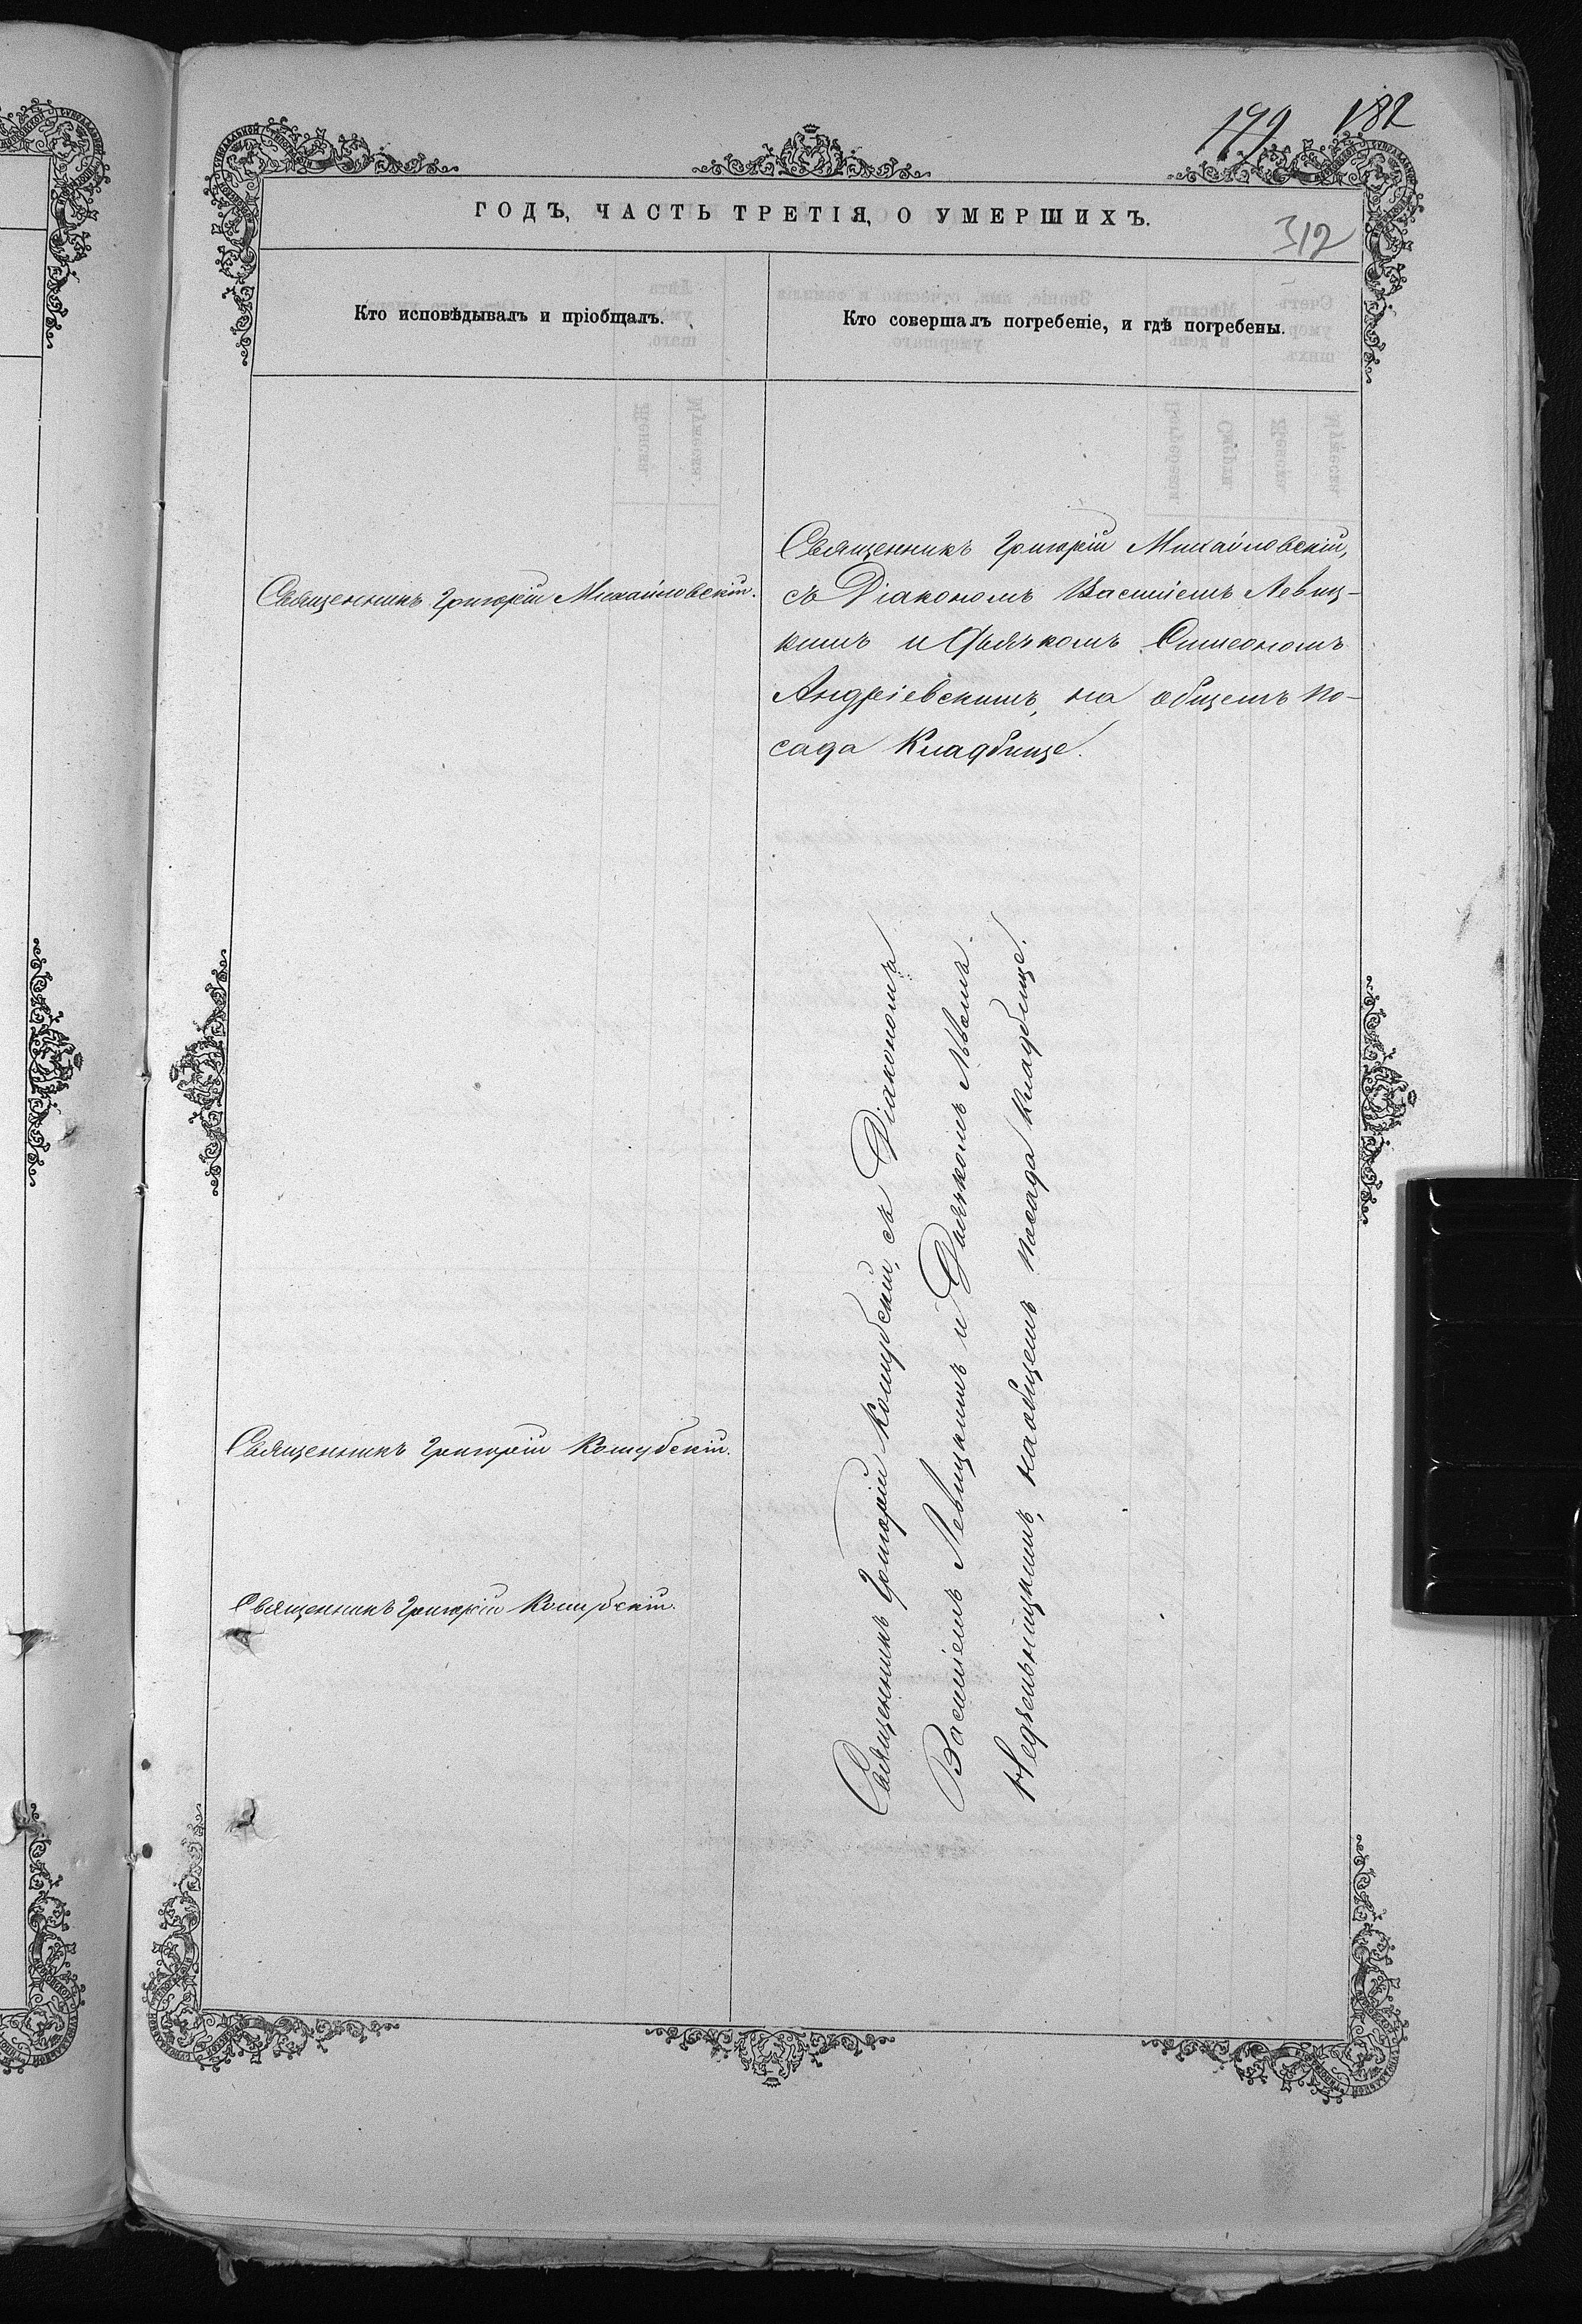 179 182
ГОДЪ, ЧАСТЬ ТРЕТІЯ, О УМЕРШИХЪ.
312
Кто исповѣдывалъ и пріобщалъ.
Кто совершалъ погребеніе, и гдѣ погребены.
Священникъ Григорій Михайловскій.
Священникъ Григорій Михайловскій,
съ Діакономъ Василіемъ Левиц-
кимъ и Дьячкомъ Симеономъ
Андріевскимъ, на общемъ по-
сада Кладбище.
Священникъ Григорій
Священникъ Григорій
Священникъ Григорій съ Діакономъ
Василіемъ Левицкимъ и Дьячкомъ
Недѣльницкимъ, на общемъ посада кладбище.